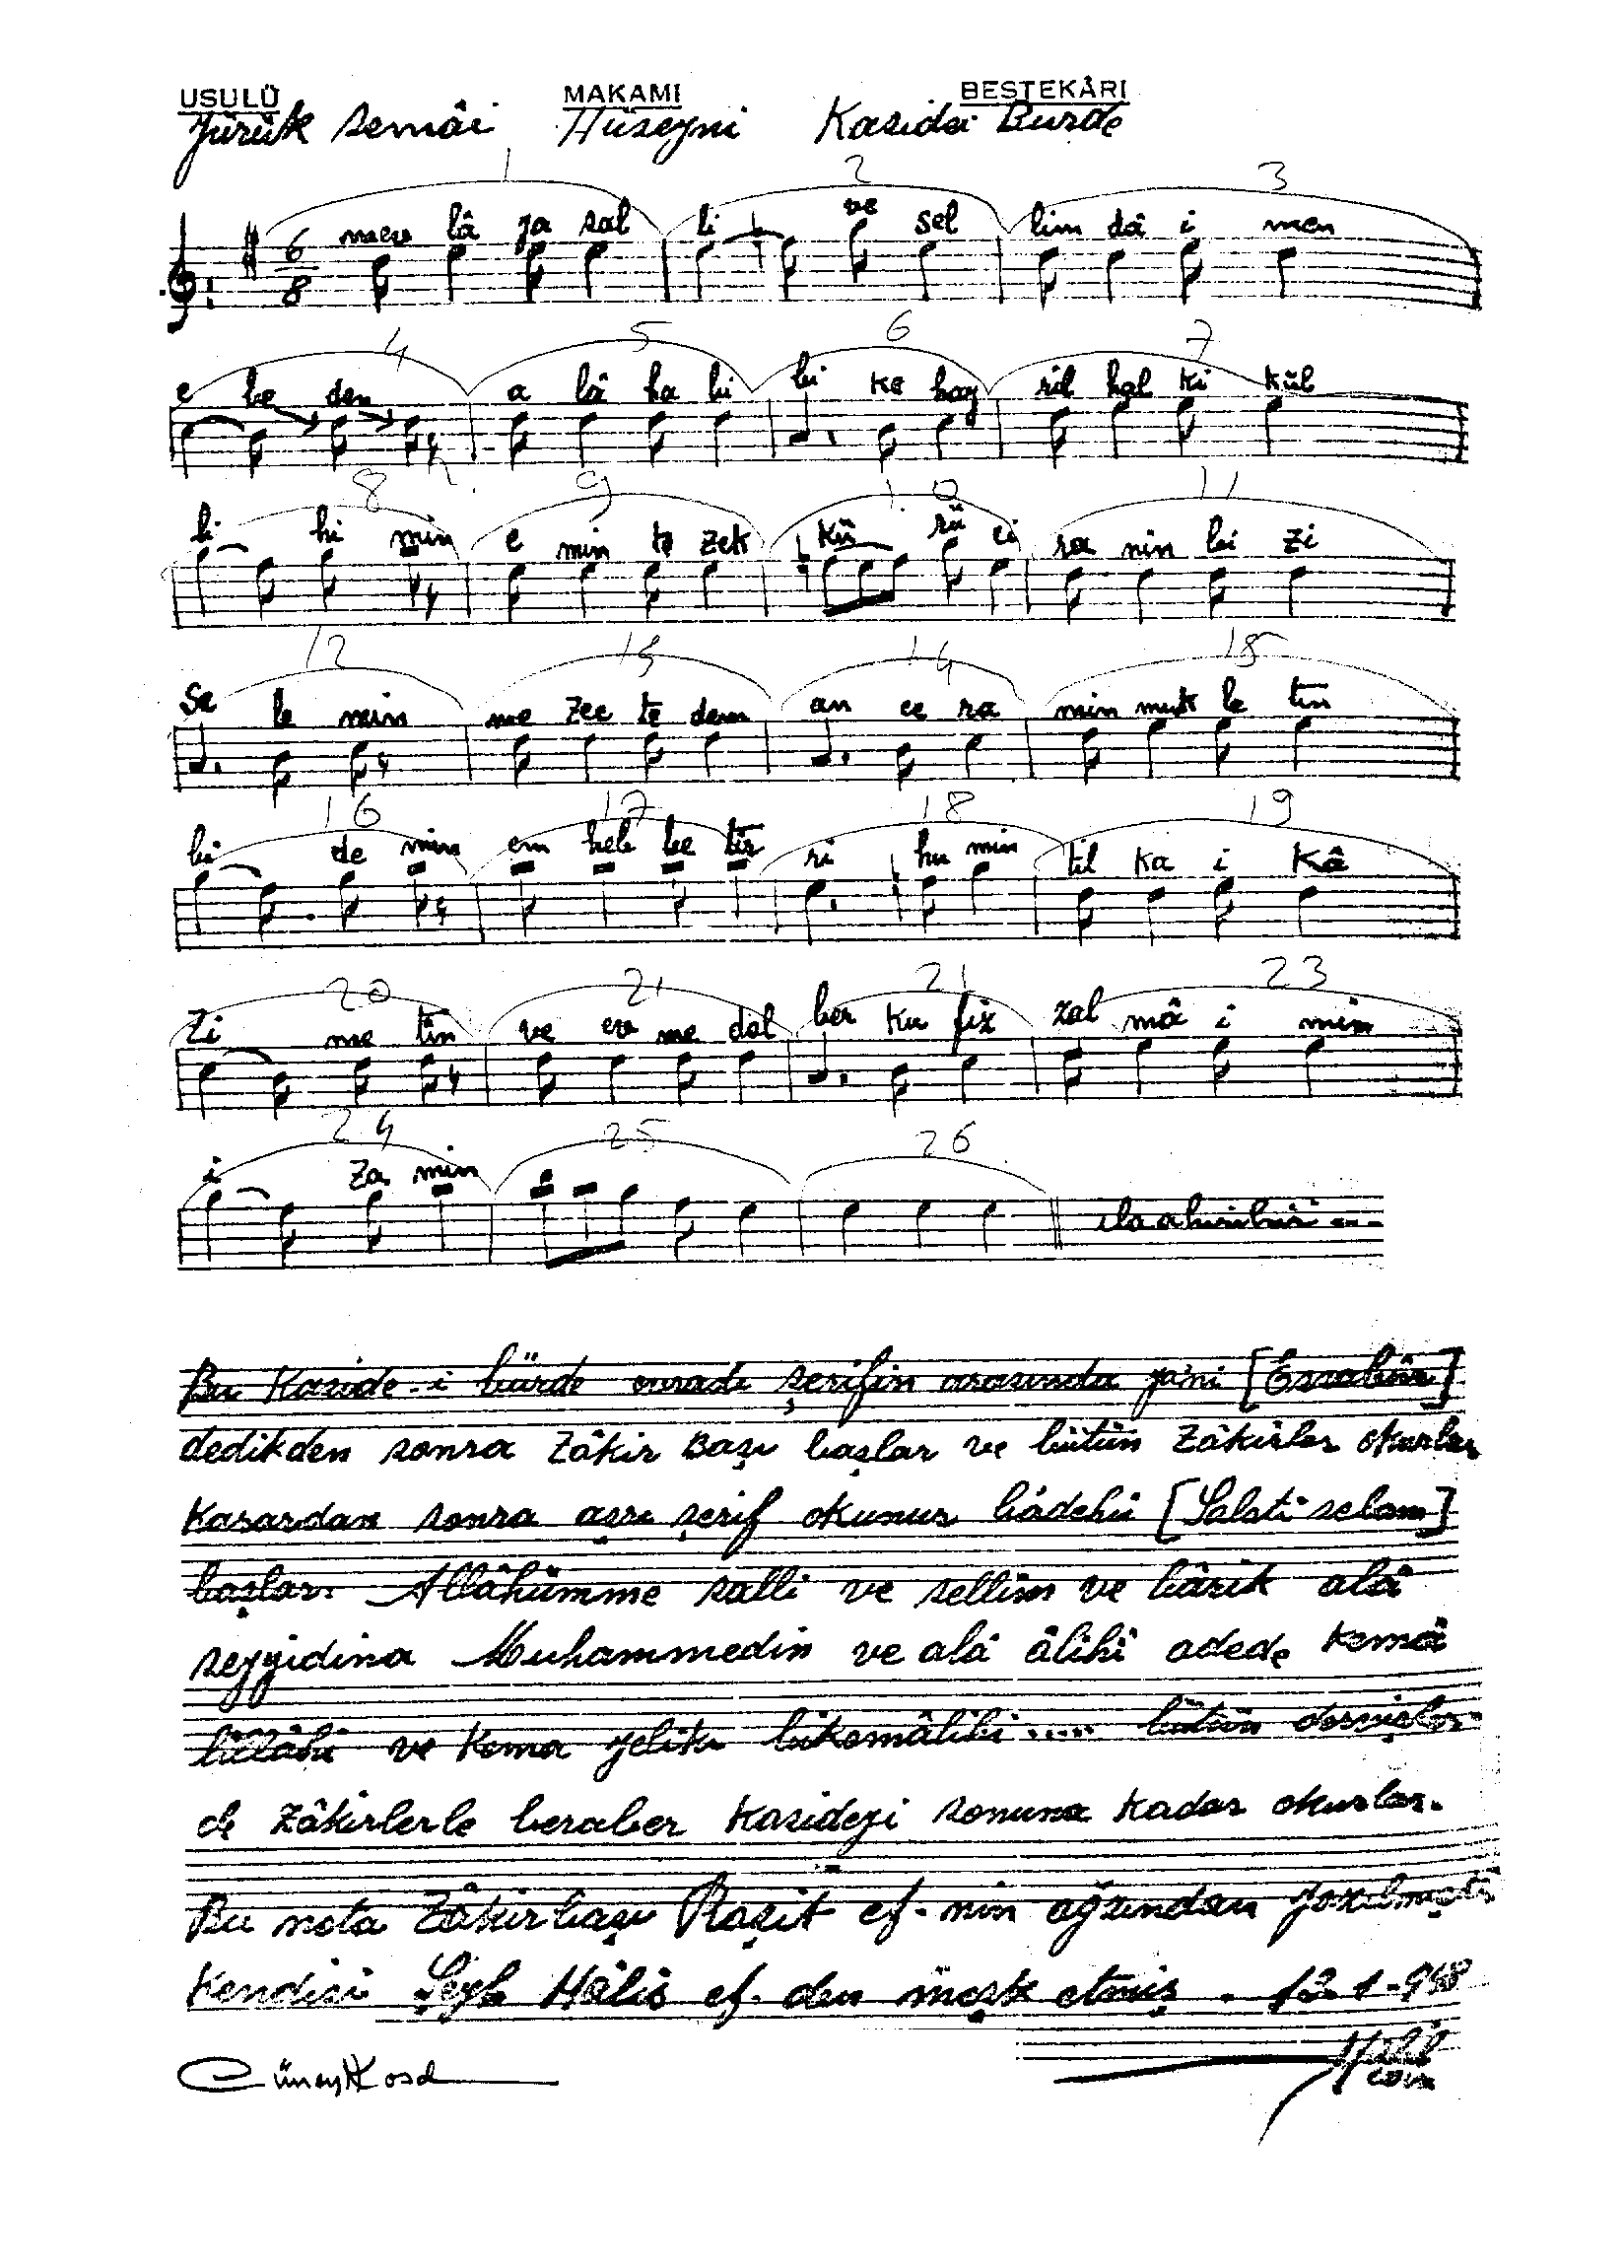 USULÜ MAKAMI BESTEKÂRI
Yürük semâi Hüseyni Kasidei Burde
1 2 3
6 8 mev lâ ya sal li ve sel lim dâ i men
4 5 6 7
e be den a lâ ha bi bi ke hay ril hal ki kül
8 9 10 11
li hi min e min te zek kü rü ci ra nin bi zi
12 13 14 15
se le min me zec te dem an ce ra min muk le tin
16 17 18 19
bi de min em heb be tir ri hu min til ka i kâ
20 21 21 23
zi me tin ve ev me dal ber ku fiz zal mâ i min
24 25 26
i za min ila ahirihi ...
Bu Kaside-i bürde evradı şerifin arasında ya'ni [Essabûr]
dedikden sonra Zâkir Başı başlar ve bütün Zâkirler okurlar
Karardan sonra aşrı şerif okunur bâdehü [Salatı selam]
başlar. Allâhümme salli ve sellim ve bârik alâ
seyyidina Muhammedin ve alâ âlihî adede kemâ
lillâhi ve kema yeliku bikemâlihi ..... bütün dervişler
de Zâkirlerle beraber kasideyi sonuna kadar okurlar.
Bu nota Zâkirbaşı Raşit ef. nin ağzından yazılmıştır
Kendisi Şeyh Hâlis ef. den meşk etmiş. 12-1-948
Cüneyt Kosal Halil Can